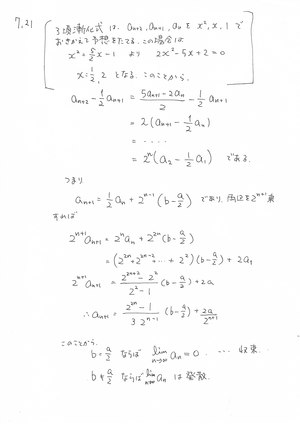 7.21
3項漸化式は、aₙ₊₂, aₙ₊₁, aₙ を x², x, 1 で
おきかえて予想をたてる。この場合は
x² = 5/2 x - 1 より 2x² - 5x + 2 = 0
x = 1/2, 2 となる。このことから、
aₙ₊₂ - 1/2 aₙ₊₁ = (5aₙ₊₁ - 2aₙ)/2 - 1/2 aₙ₊₁
= 2(aₙ₊₁ - 1/2 aₙ)
= ‥‥‥
= 2ⁿ(a₂ - 1/2 a₁) である.
つまり
aₙ₊₁ = 1/2 aₙ + 2ⁿ⁻¹(b - a/2) であり、両辺を 2ⁿ⁺¹乗
すれば
2ⁿ⁺¹aₙ₊₁ = 2ⁿaₙ + 2²ⁿ(b - a/2)
= (2²ⁿ + 2²ⁿ⁻² ‥‥ + 2²)(b - a/2) + 2a₁
2ⁿ⁺¹aₙ₊₁ = (2²ⁿ⁺² - 2²)/(2² - 1) (b - a/2) + 2a
∴ aₙ₊₁ = (2²ⁿ - 1)/(3·2ⁿ⁻¹) (b - a/2) + 2a/2ⁿ⁺¹
このことから、
b = a/2 ならば lim n→∞ aₙ = 0 ‥‥ 収束.
b ≠ a/2 ならば lim n→∞ aₙ は 発散.